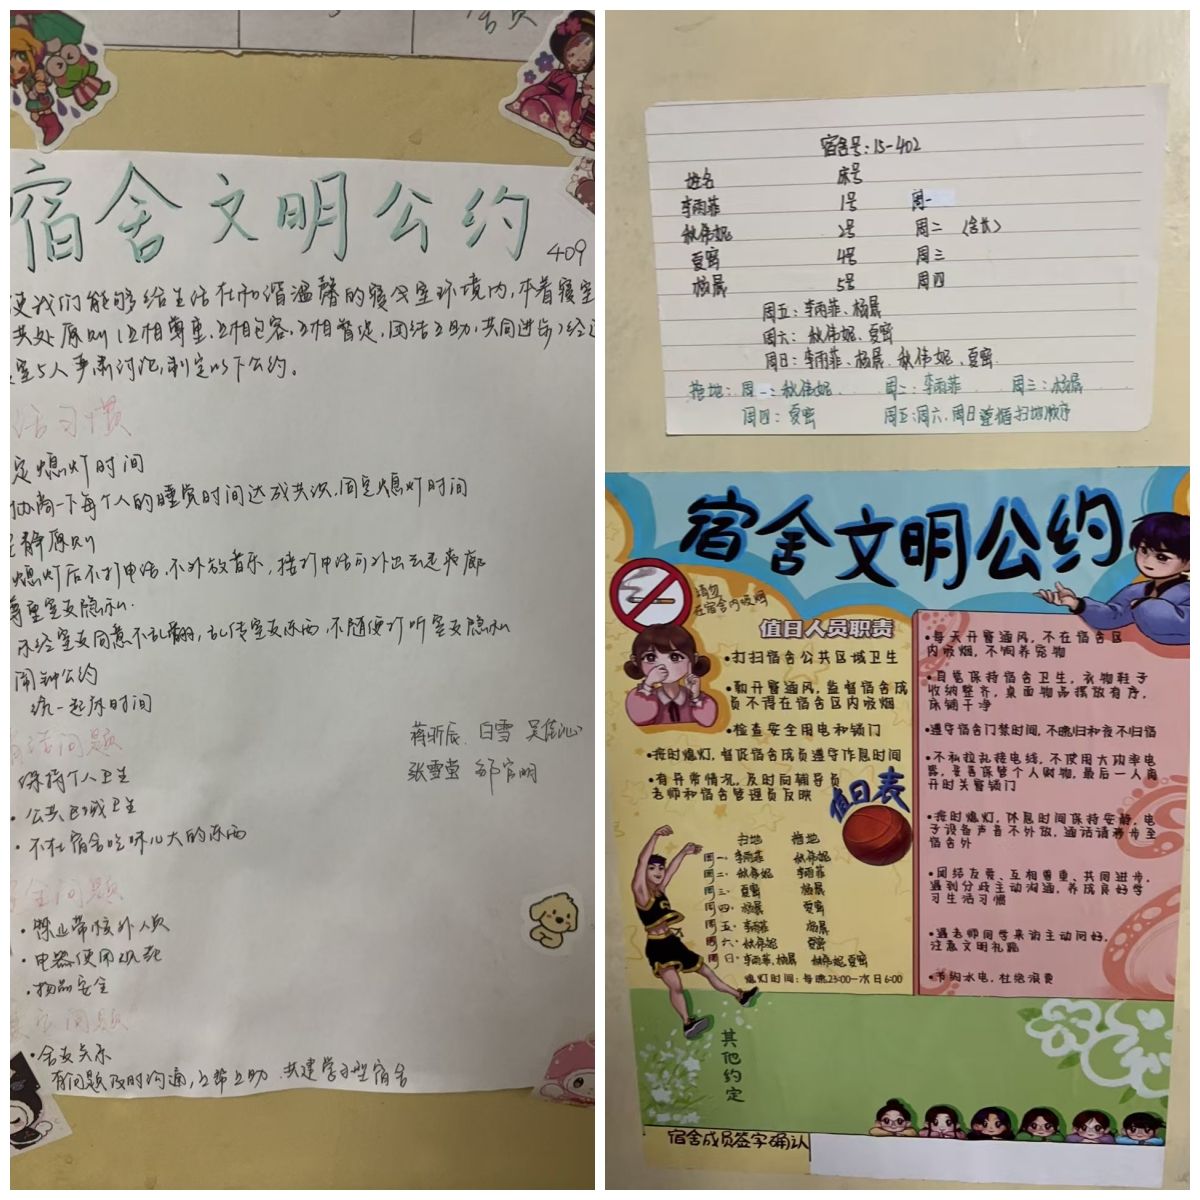 舍员
宿舍文明公约
409
使我们能够给生活在和谐温馨的寝室环境内,本着寝室
共处原则(互相尊重、互相包容、互相督促,团结互助,共同进步)经过
室5人严肃讨论,制定以下公约。
活习惯
定熄灯时间
协商一下每个人的睡觉时间达成共识,固定熄灯时间
静原则
熄灯后不打电话,不外放音乐,接打电话可外出去走廊
尊重室友隐私
未经室友同意不乱翻,乱传室友东西,不随便打听室友隐私
闹钟公约
统一起床时间
生活问题
保持个人卫生
·公共区域卫生
·不在宿舍吃味儿大的东西
蒋昕辰、白雪 吴佳沁
张雪莹 邹官明
全问题
·禁止带校外人员
·电器使用规范
·物品安全
问题
·舍友关系
有问题及时沟通,互帮互助 共建学习型宿舍
宿舍号:15-402
姓名 床号
李雨菲 1号 周一
秋伟妮 2号 周二 (舍长)
夏蜜 4号 周三
杨晨 5号 周四
周五:李雨菲、杨晨
周六:秋伟妮、夏蜜
周日:李雨菲、杨晨、秋伟妮、夏蜜
拖地:周一:秋伟妮 周二:李雨菲 周三:杨晨
周四:夏蜜 周五:周六、周日遵循扫地顺序
宿舍文明公约
请勿
在宿舍内吸烟
值日人员职责
•打扫宿舍公共区域卫生
•勤开窗通风,监督宿舍成
员不得在宿舍区内吸烟
•检查安全用电和锁门
•按时熄灯,督促宿舍成员遵守作息时间
•有异常情况,及时向辅导员
老师和宿舍管理员反映
值日表
扫地 拖地
周一:李雨菲 秋伟妮
周二:秋伟妮 李雨菲
周三:夏蜜 杨晨
周四:杨晨 夏蜜
周五:李雨菲 杨晨
周六:秋伟妮 夏蜜
周日:李雨菲、杨晨 秋伟妮、夏蜜
熄灯时间:每晚23:00-次日6:00
•每天开窗通风,不在宿舍区
内吸烟,不饲养宠物
•自觉保持宿舍卫生,衣物鞋子
收纳整齐,桌面物品摆放有序,
床铺干净
•遵守宿舍门禁时间,不晚归和夜不归宿
•不私拉乱接电线,不使用大功率电
器,妥善保管个人财物,最后一人离
开时关窗锁门
•按时熄灯,休息时间保持安静,电
子设备声音不外放,通话请移步至
宿舍外
•团结友爱、互相尊重、共同进步,
遇到分歧主动沟通,养成良好学
习生活习惯
•遇老师同学来访主动问好,
注意文明礼貌
•节约水电,杜绝浪费
其他约定
宿舍成员签字确认